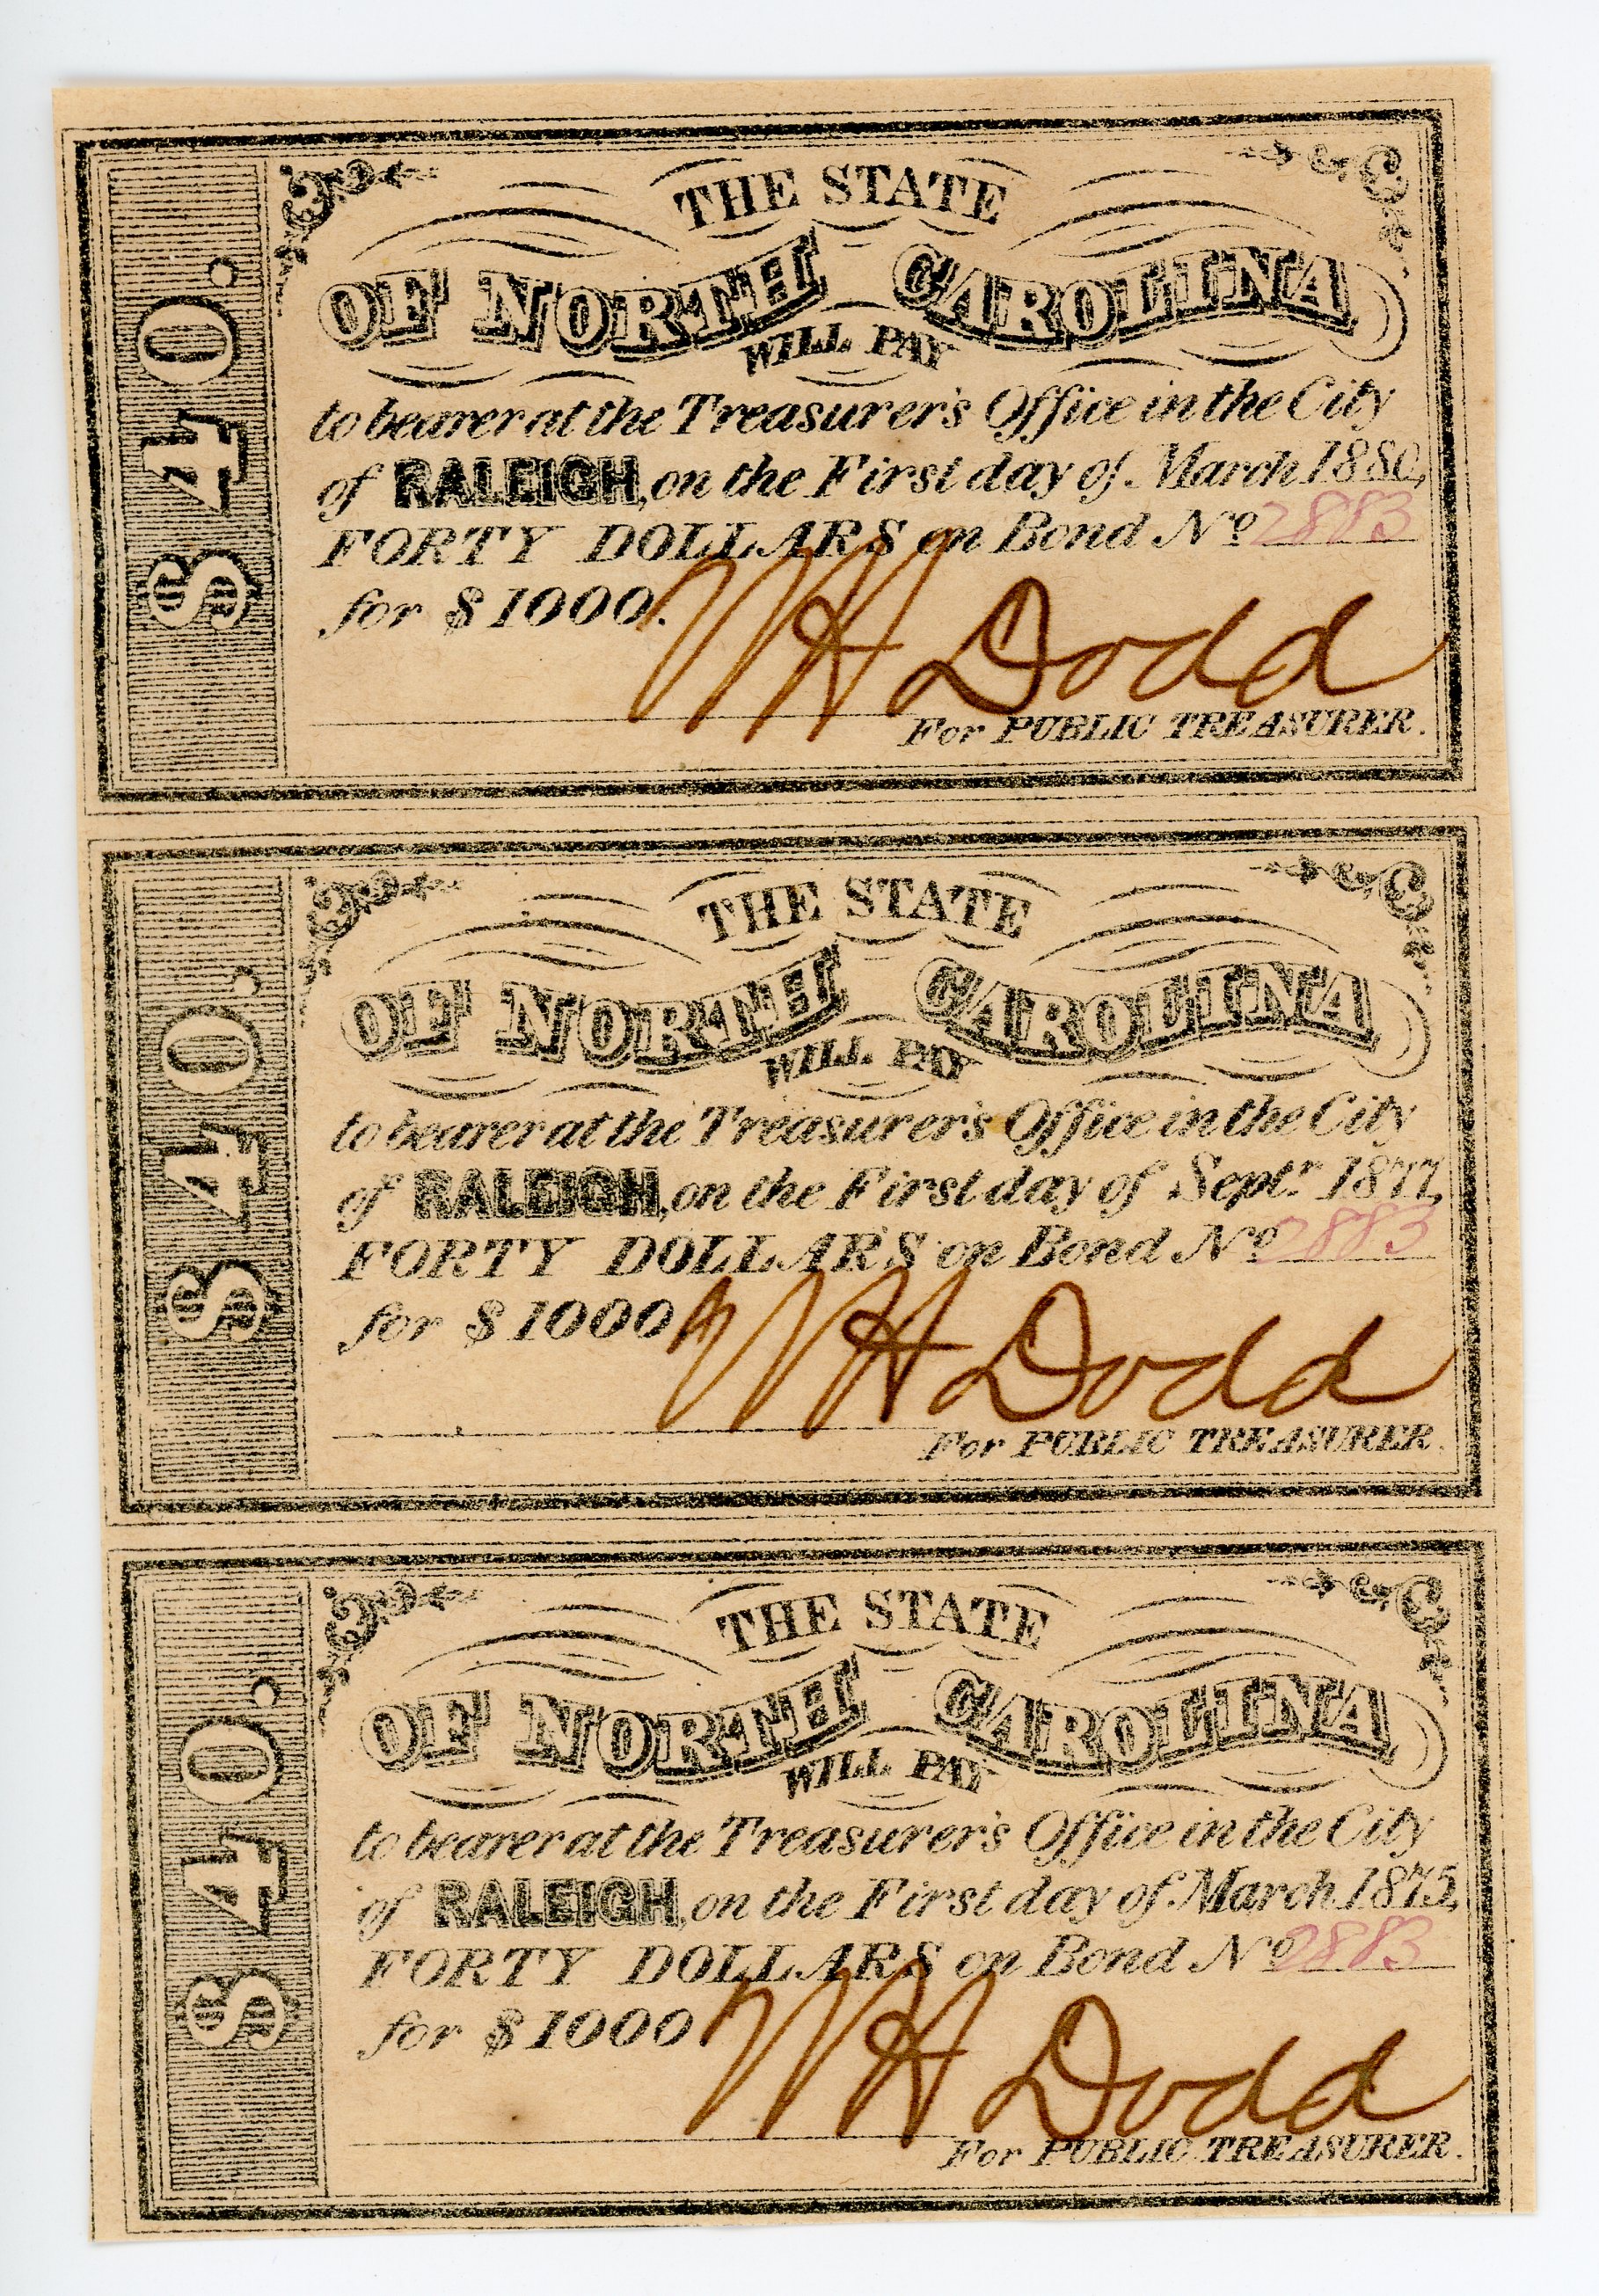 $40.
THE STATE
OF NORTH CAROLINA
WILL PAY
to bearer at the Treasurer's Office in the City
of RALEIGH, on the First day of March 1880,
FORTY DOLLARS on Bond No 2883
for $1000.
W H Dodd
For PUBLIC TREASURER.
$40.
THE STATE
OF NORTH CAROLINA
WILL PAY
to bearer at the Treasurer's Office in the City
of RALEIGH, on the First day of Septr. 1877,
FORTY DOLLARS on Bond No 2883
for $1000
W H Dodd
For PUBLIC TREASURER.
$40.
THE STATE
OF NORTH CAROLINA
WILL PAY
to bearer at the Treasurer's Office in the City
of RALEIGH, on the First day of March 1875,
FORTY DOLLARS on Bond No 2883
for $1000.
W H Dodd
For PUBLIC TREASURER.